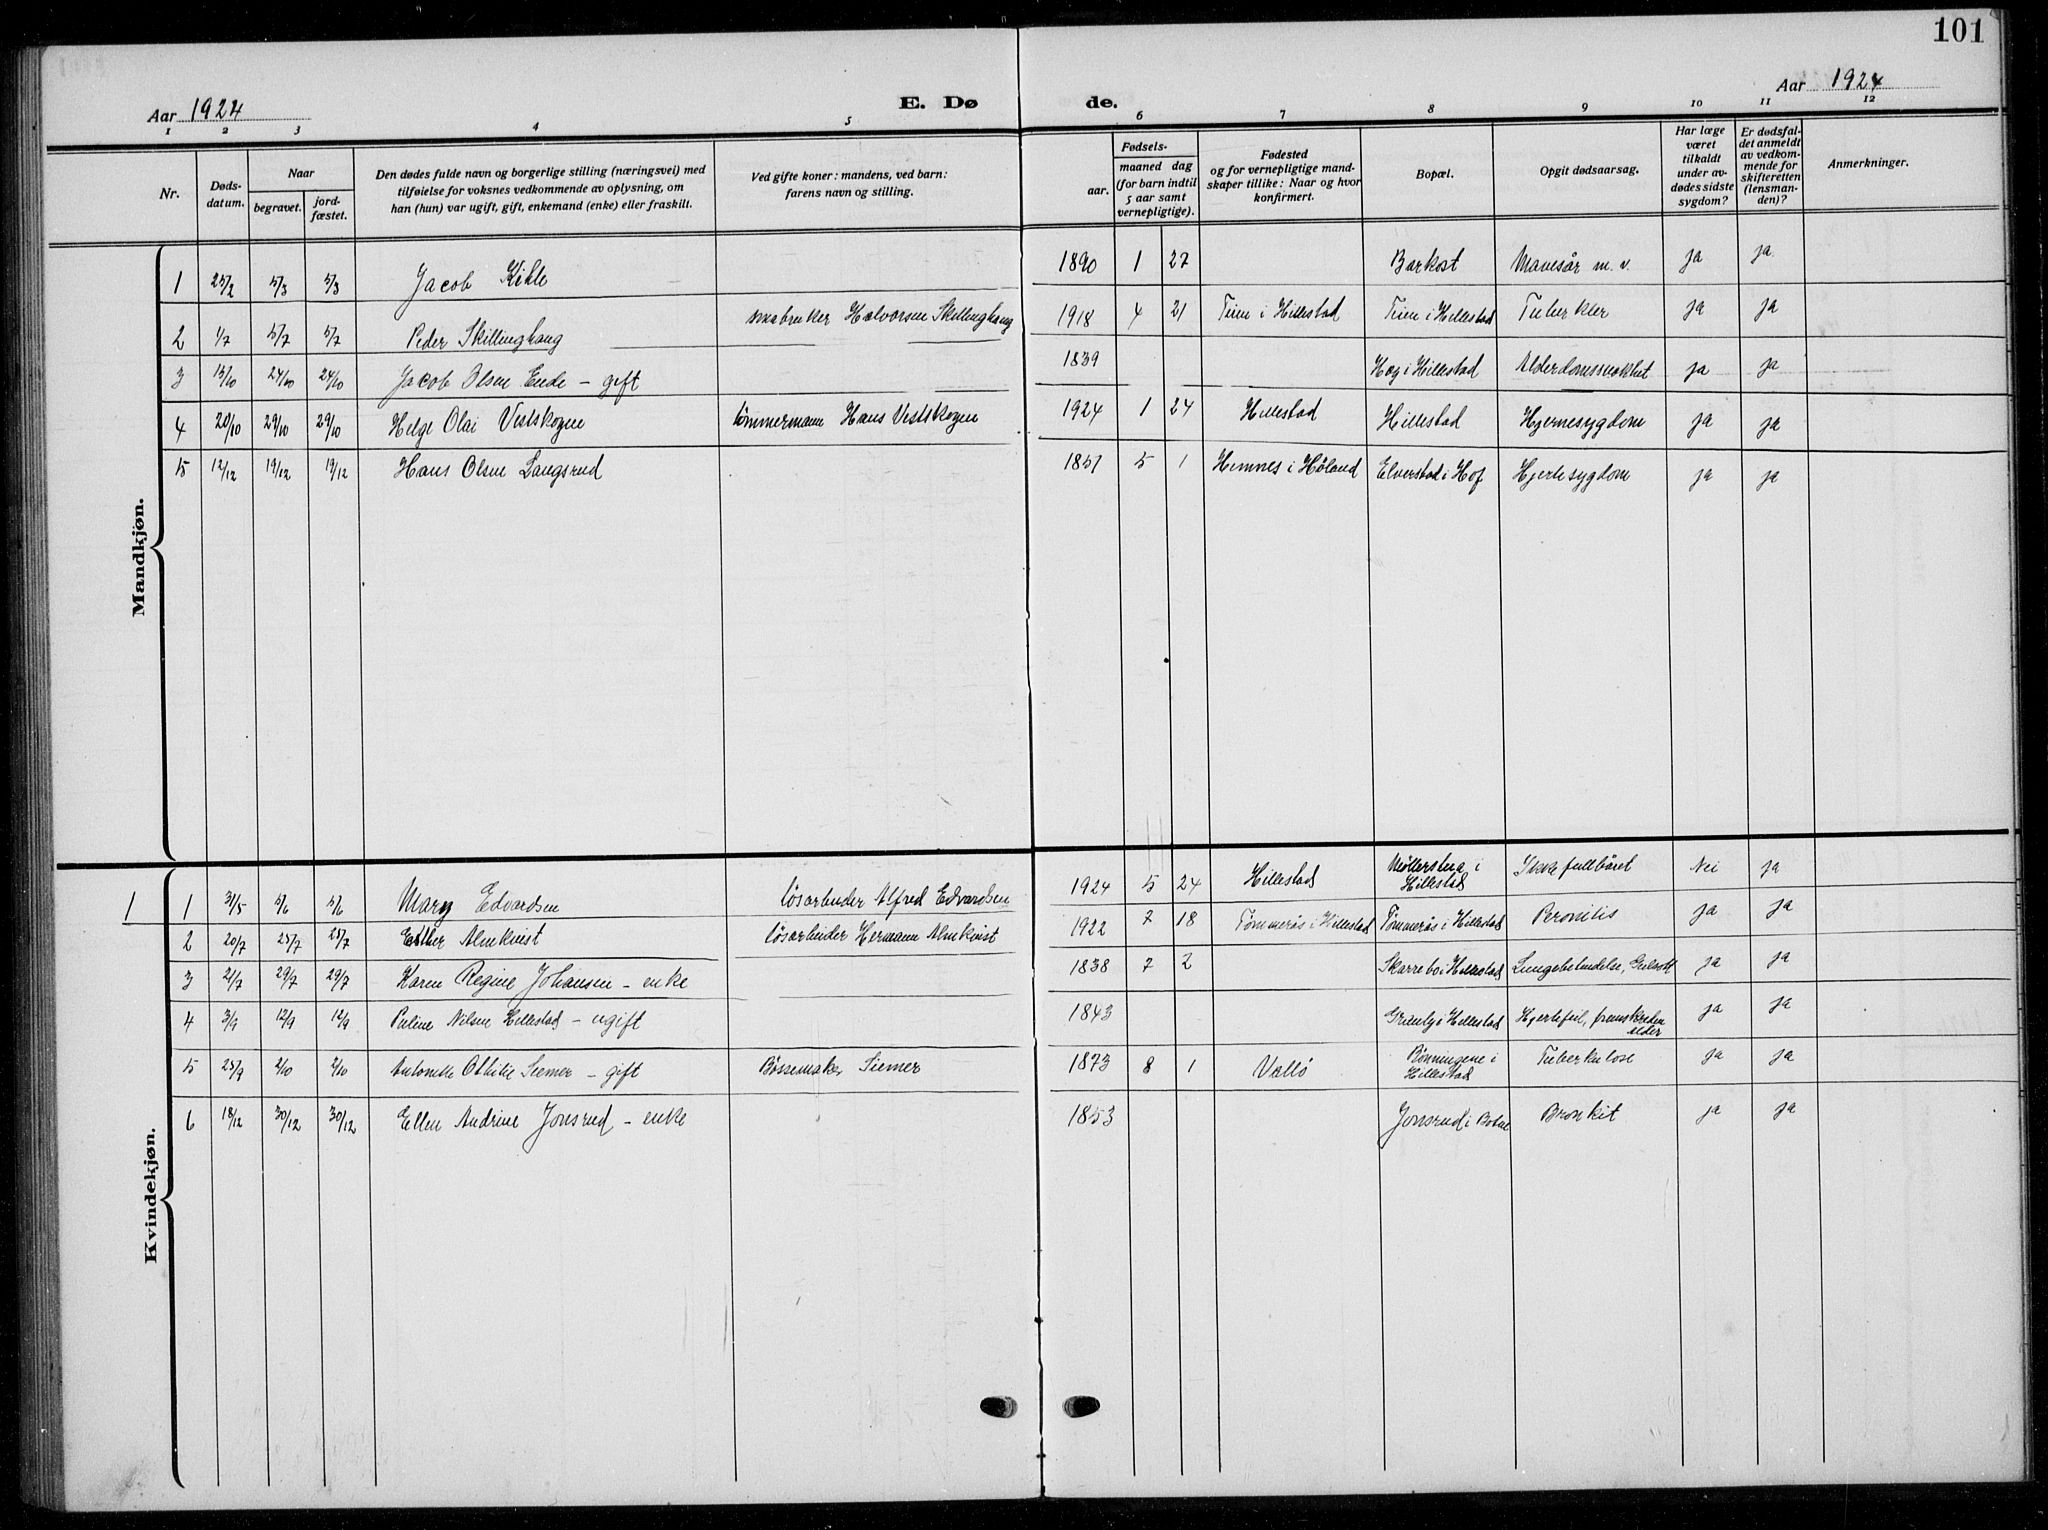 101
Aar 1924 E. Dø de. Aar 1924
1 2 3 4 5 6 7 8 9 10 11 12
Nr. Døds-datum. Naar begravet. jord-fæstet. Den dødes fulde navn og borgerlige stilling (næringsvei) med tilføielse for voksnes vedkommende av oplysning, om han (hun) var ugift, gift, enkemand (enke) eller fraskilt. Ved gifte koner: mandens, ved barn: farens navn og stilling. Fødsels- aar. maaned dag (for barn indtil 5 aar samt vernepligtige). Fødested og for vernepligtige mand-skaper tillike: Naar og hvor konfirmert. Bopæl. Opgit dødsaarsag. Har læge været tilkaldt under av-dødes sidste sygdom? Er dødsfal-det anmeldt av vedkom-mende for skifteretten (lensman-den)? Anmerkninger.
Mandkjøn.
1 25/2 5/3 5/3 Jacob Kihle 1890 1 27 Barkost Mavesår m. v. ja ja
2 1/7 5/7 5/7 Peder Skillinghaug Halvorsen Skillinghaug 1918 4 21 i Hillestad i Hillestad Tuberkler ja ja
3 15/10 24/10 24/10 Jacob Olsen Ende - gift 1839 Hag i Hillestad ja ja
4 20/10 29/10 29/10 Helge Olai Vestskogen tømmermann Hans Vestskogen 1924 1 24 Hillestad Hillestad Hjernesygdom ja ja
5 12/12 19/12 19/12 Hans Olsen Langsrud 1851 5 1 Hemnes i Høland Elverstad i Hof Hjertesygdom ja ja
Kvindekjøn.
1 1 31/5 5/6 5/6 Mary Edvardsen løsarbeider Alfred Edvardsen 1924 5 24 Hillestad Møllerstua i Hillestad Ikke fullbåret Nei ja
2 20/7 25/7 25/7 Esther Almkvist løsarbeider Hermann Almkvist 1922 7 18 Tømmerås i Hillestad Tømmerås i Hillestad ja ja
3 21/7 29/7 29/7 Karen Regine Johansen - enke 1838 7 2 Skarrebo i Hillestad Lungebetendelse, ja ja
4 3/9 12/9 12/9 Nilsen Hillestad - ugift 1843 i Hillestad Hjertefeil, fremskreden alder ja ja
5 25/9 2/10 2/10 Antonette Othilie Siemer - gift Bøssemaker Siemer 1873 8 1 Vallø Rønningene i Hillestad Tuberkulose ja ja
6 18/12 30/12 30/12 Ellen Andrine Jonsrud - enke 1853 Jonsrud i Botne Bronkit ja ja